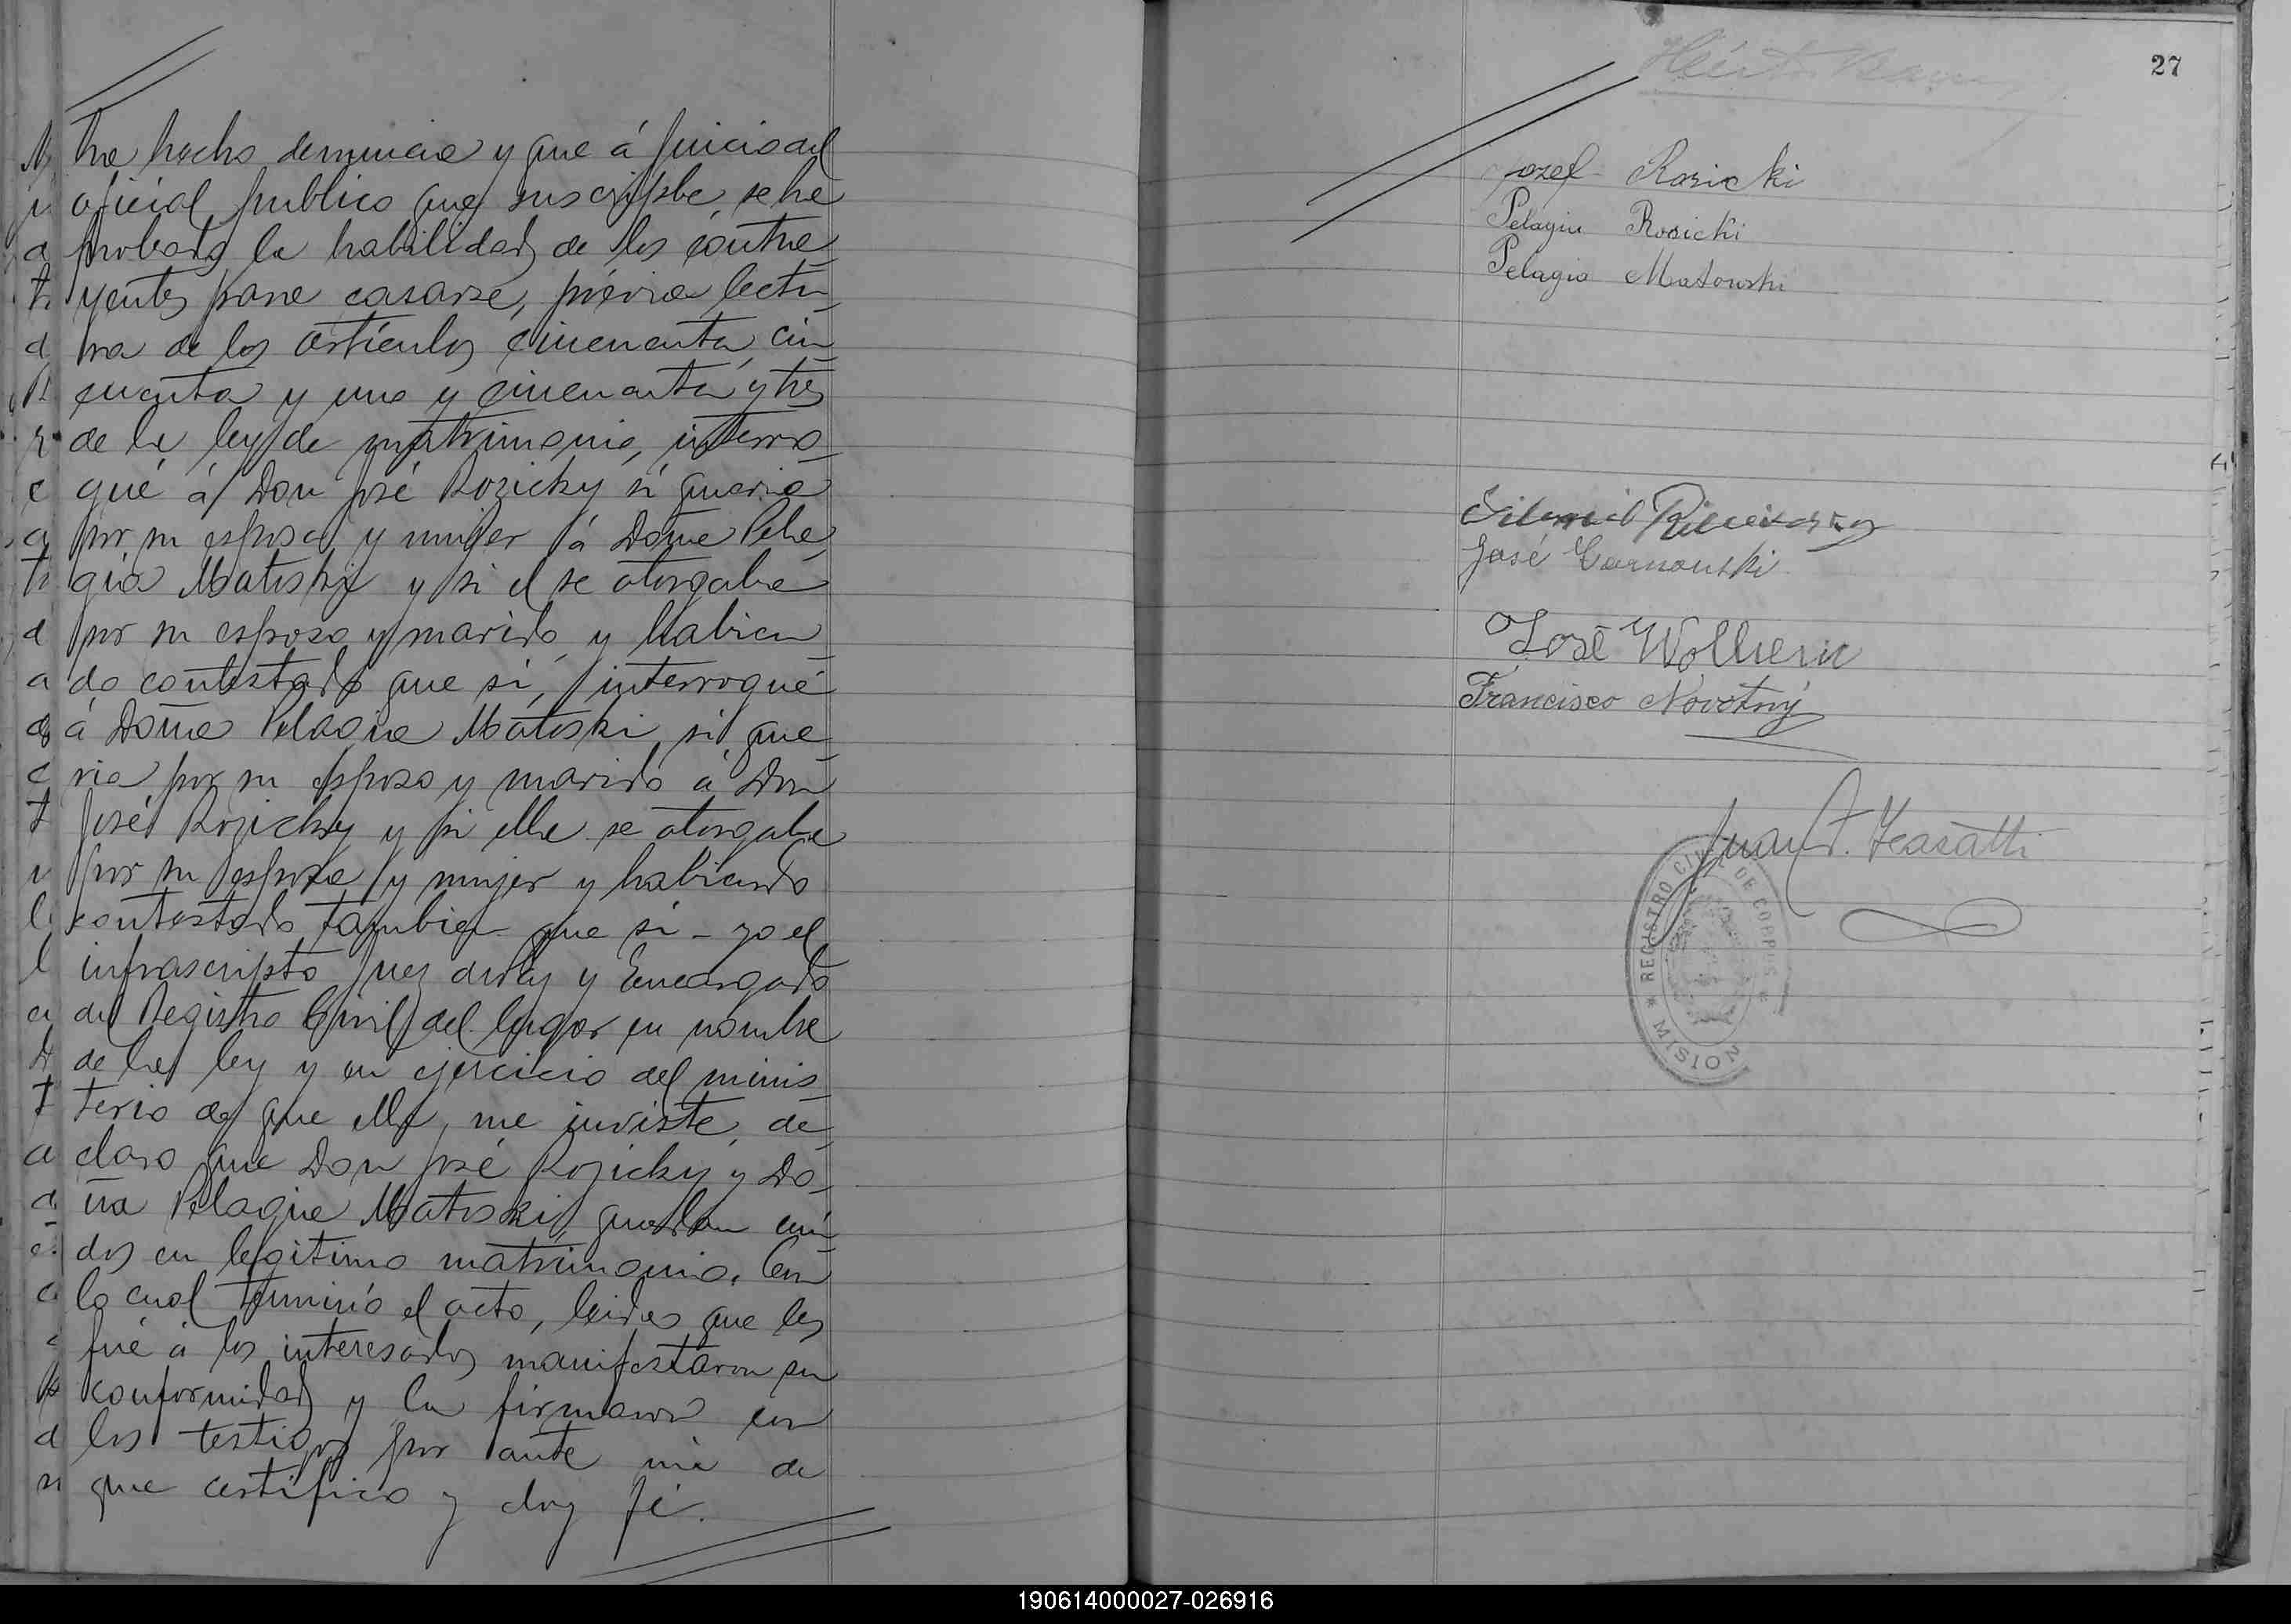 ha hecho denuncia y que á juicio del
oficial publico que suscripbe, se há
probado la habilidad de los contra
yentes para casarse, prévia lectu
ra de los artículos cincuenta, cin
cuenta y uno y cincuenta y tres
de la ley de matrimonio, interro
gué á Don José Rozicky si queria
por su esposa y mujer á Doña Pela
gia Matoski y si el se otorgaba
por su esposo y marido, y habien
do contestado que si, interrogué
á Doña Pelagia Matoski si que
ria por su esposo y marido á Don
José Rozicky y si ella se otorgaba
por su esposa y mujer y habiendo
contestado tambien que si - yo el
infrascripto Juez de Paz y Encargado
del Registro Civil del lugar en nombre
de la ley y en ejercicio del minis
terio de que ella, me inviste, de
claro que Don José Rozicky y Do
ña Pelagia Matoski, quedan uni
dos en legitimo matrimonio. Con
lo cual terminó el acto, leida que les
fué á los interesados manifestaron su
conformidad y la firmaron con
los testigos por ante mi de
que certifico y doy fé.
27
Jozef Rosicki
Pelagia Rosicki
Pelagia Matowski
José Carnowski
José
Francisco Novotný
Juan
REGISTRO CIVIL DE CORPUS
MISION
190614000027-026916